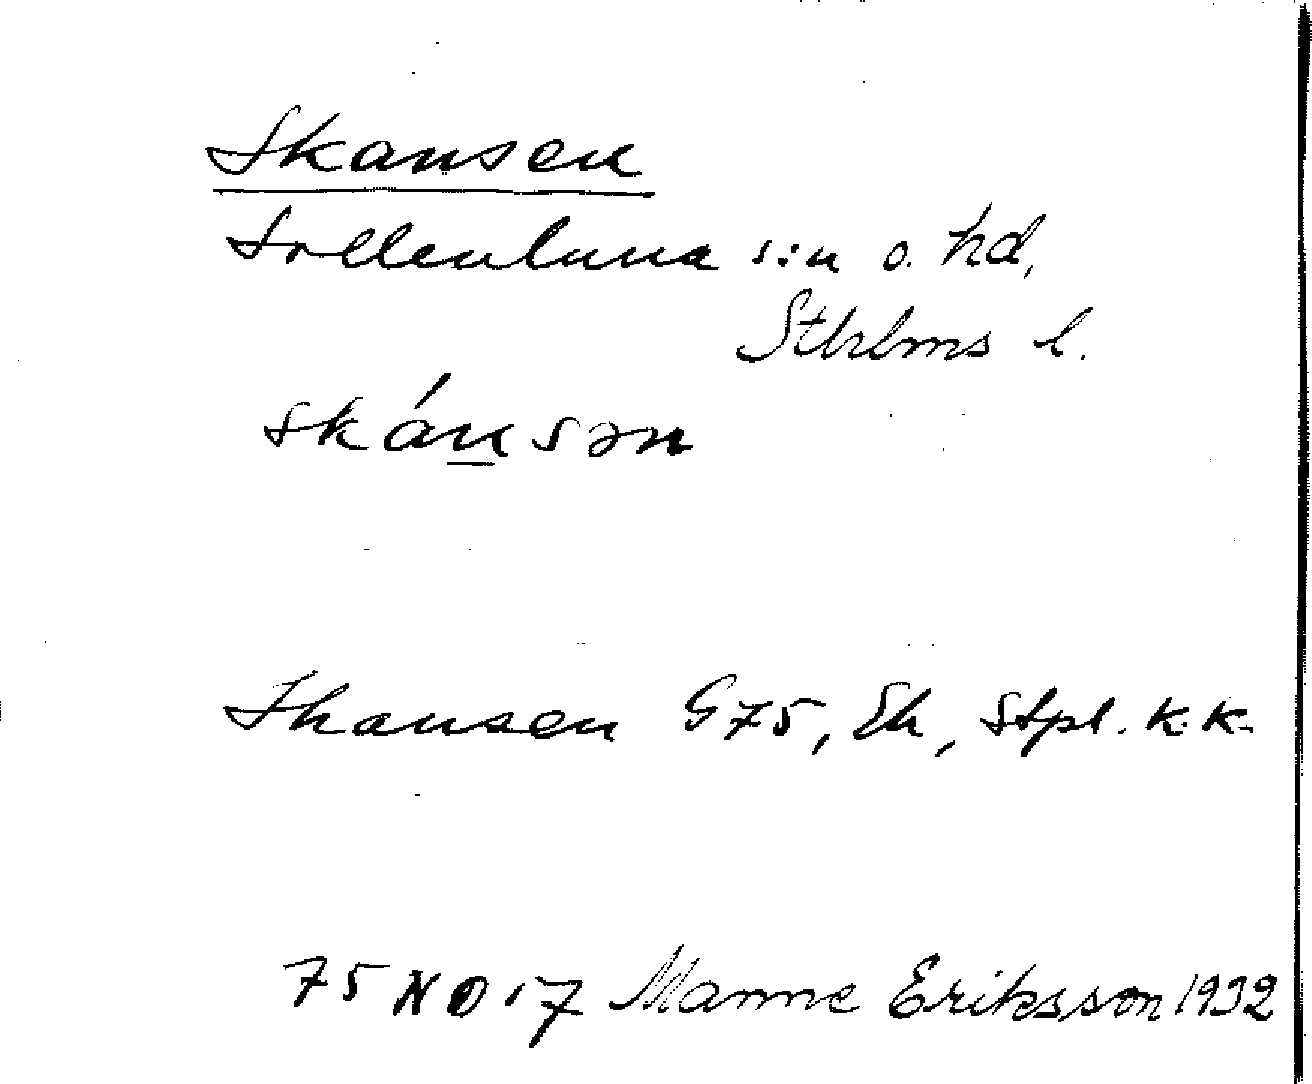 Skansen
Sollentuna s:n o. hd,
Sthlms l.
skánsən
Skansen G75, Ek, Stpl. K.K.
75 NO i7 Manne Eriksson 1932